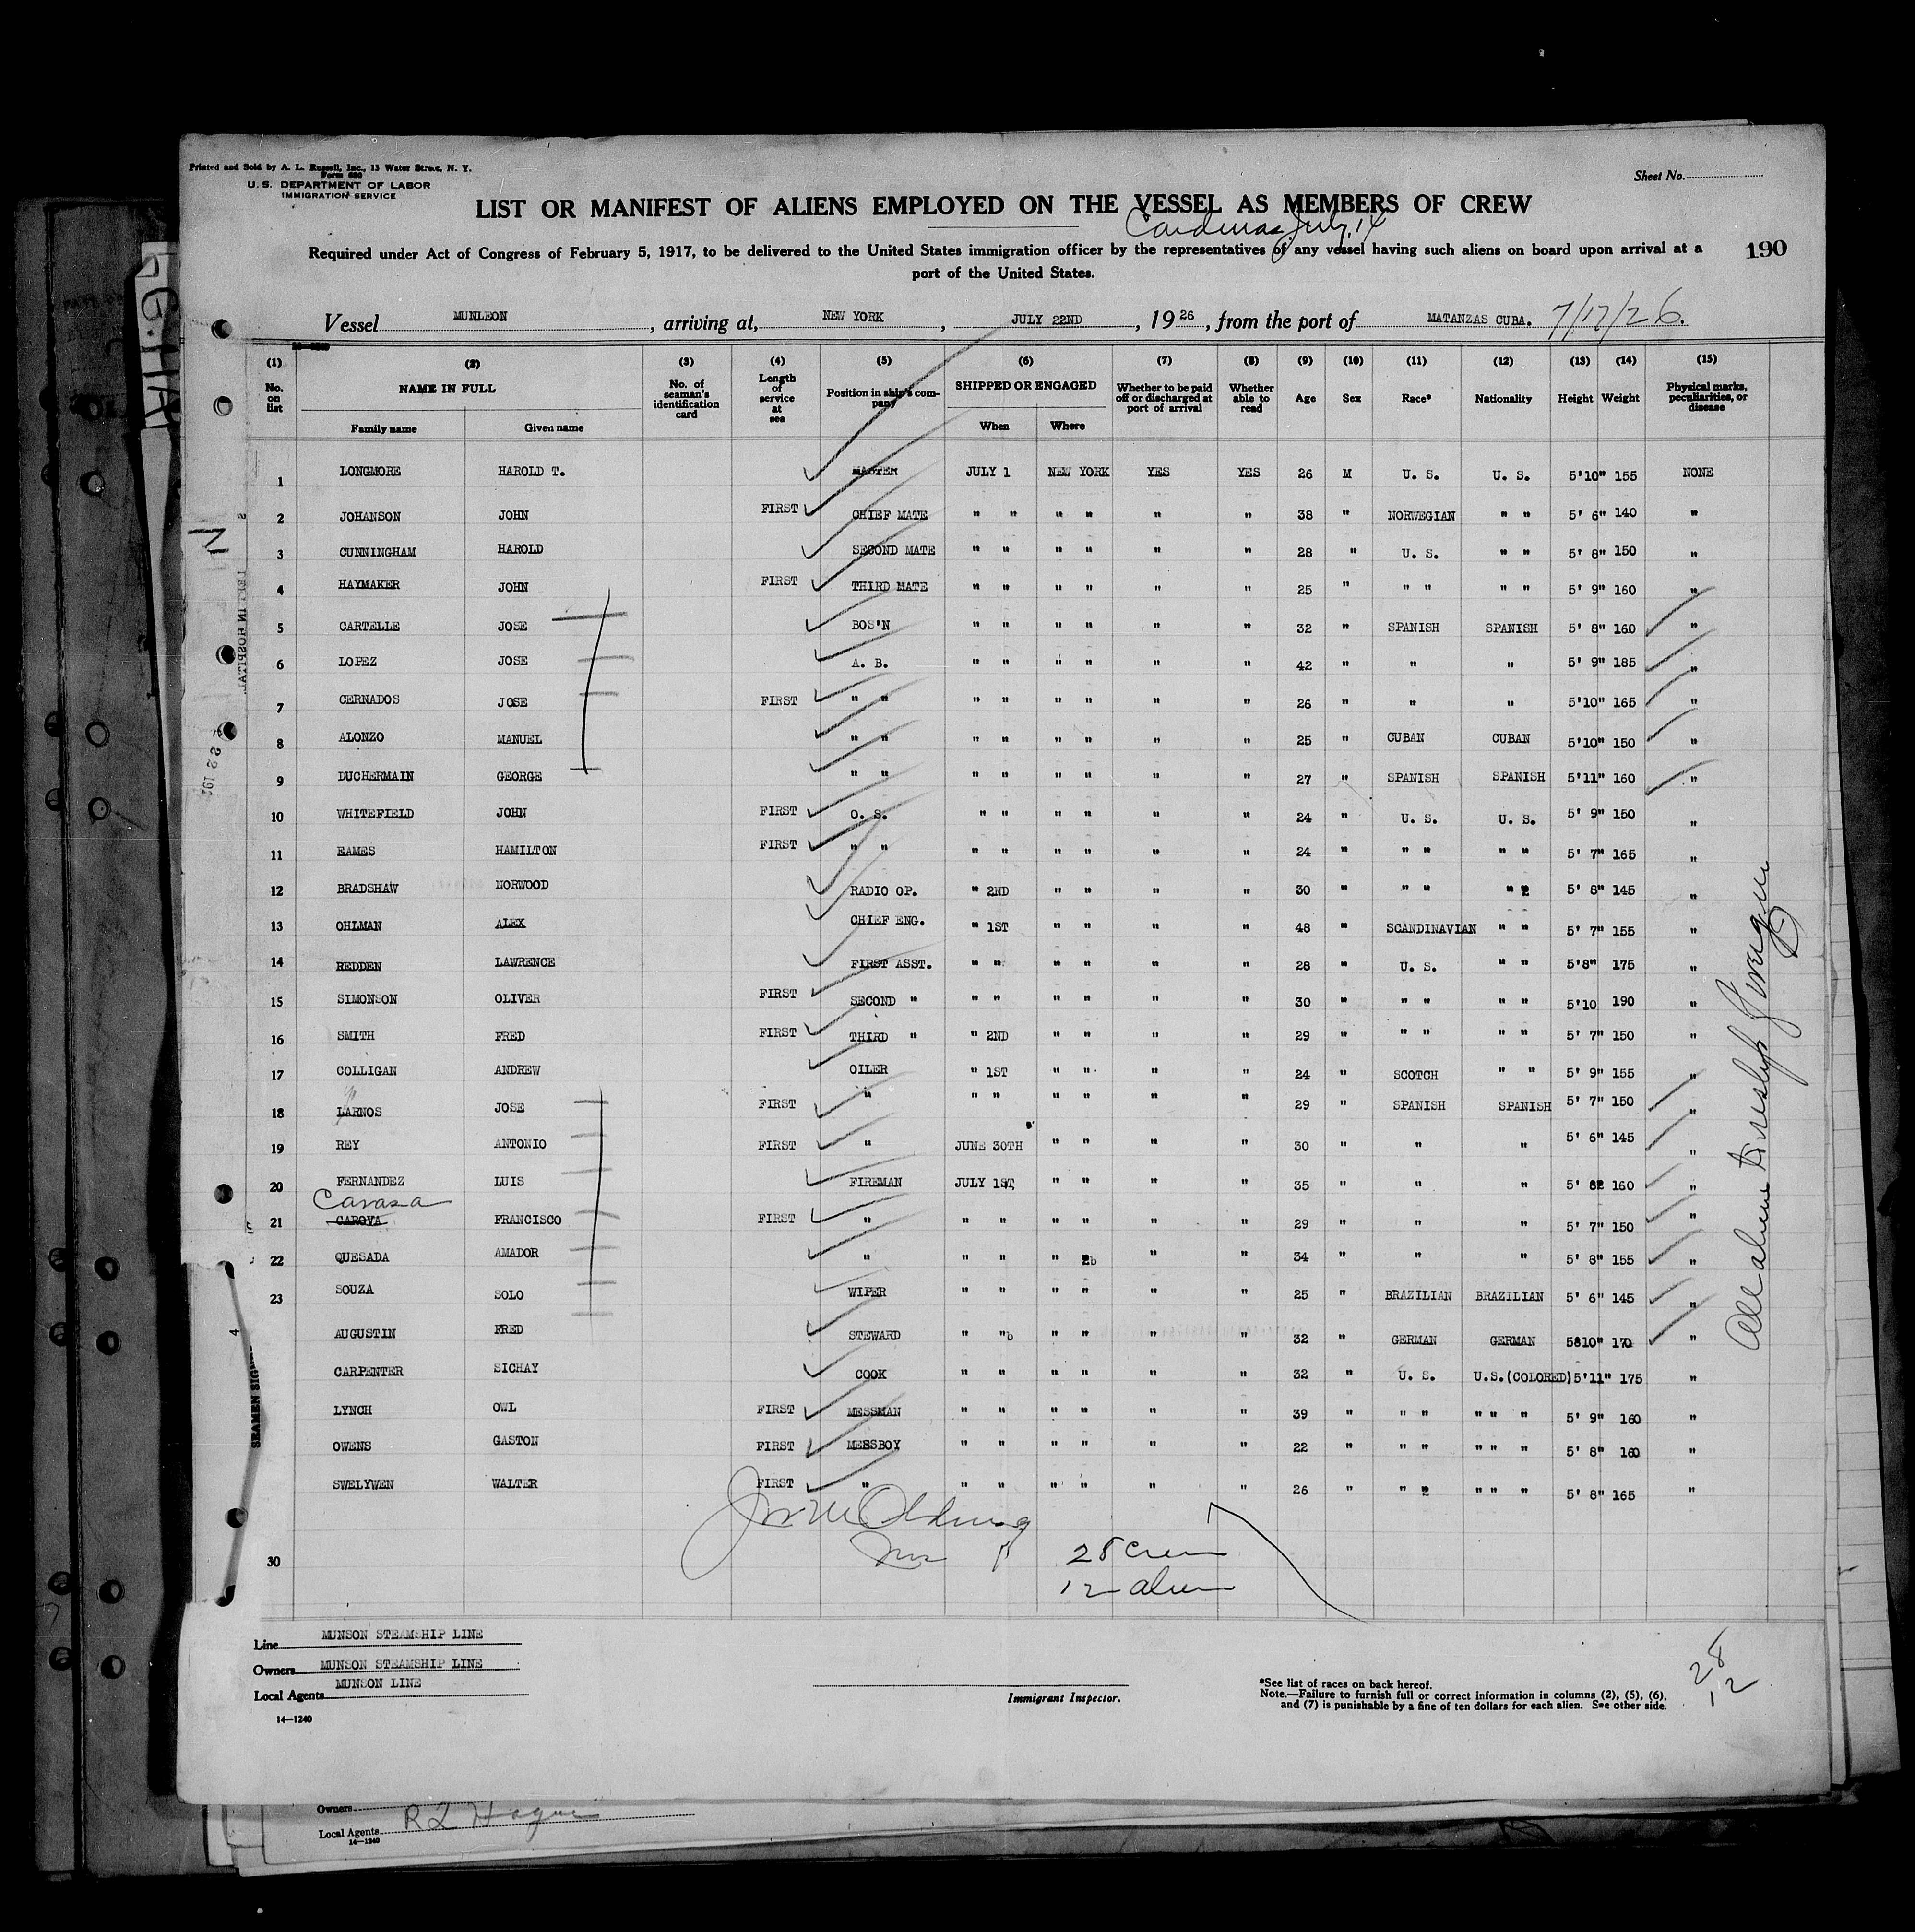 Printed and Sold by A. L. Russell, Inc., 13 Water Street, N. Y.
Form 680
U. S. DEPARTMENT OF LABOR
IMMIGRATION SERVICE
Sheet No.
LIST OR MANIFEST OF ALIENS EMPLOYED ON THE VESSEL AS MEMBERS OF CREW
Cardenas July 14
Required under Act of Congress of February 5, 1917, to be delivered to the United States immigration officer by the representatives of any vessel having such aliens on board upon arrival at a
port of the United States.
190
Vessel MUNLEON, arriving at, NEW YORK, JULY 22ND, 1926, from the port of MATANZAS CUBA. 7/17/26.
14—1240
(1) (2) (3) (4) (5) (6) (7) (8) (9) (10) (11) (12) (13) (14) (15)
No. on list NAME IN FULL Family name Given name No. of seaman's identification card Length of service at sea Position in ship's company SHIPPED OR ENGAGED When Where Whether to be paid off or discharged at port of arrival Whether able to read Age Sex Race* Nationality Height Weight Physical marks, peculiarities, or disease
1 LONGMORE HAROLD T. MASTER JULY 1 NEW YORK YES YES 26 M U. S. U. S. 5'10" 155 NONE
2 JOHANSON JOHN FIRST CHIEF MATE " " " " " " 38 " NORWEGIAN " " 5' 6" 140 "
3 CUNNINGHAM HAROLD SECOND MATE " " " " " " 28 " U. S. " " 5' 8" 150 "
4 HAYMAKER JOHN FIRST THIRD MATE " " " " " " 25 " " " " " 5' 9" 160 "
5 CARTELLE JOSE BOS'N " " " " " " 32 " SPANISH SPANISH 5' 8" 160 "
6 LOPEZ JOSE A. B. " " " " " " 42 " " " 5' 9" 185 "
7 CERNADOS JOSE FIRST " " " " " " " " 26 " " " 5'10" 165 "
8 ALONZO MANUEL " " " " " " " " 25 " CUBAN CUBAN 5'10" 150 "
9 DUCHERMAIN GEORGE " " " " " " " " 27 " SPANISH SPANISH 5'11" 160 "
10 WHITEFIELD JOHN FIRST O. S. " " " " " " 24 " U. S. U. S. 5' 9" 150 "
11 EAMES HAMILTON FIRST " " " " " " " " 24 " " " " " 5' 7" 165 "
12 BRADSHAW NORWOOD RADIO OP. " 2ND " " " " 30 " " " " 5' 8" 145 "
13 OHLMAN ALEX CHIEF ENG. " 1ST " " " " 48 " SCANDINAVIAN " " 5' 7" 155 "
14 REDDEN LAWRENCE FIRST ASST. " " " " " " 28 " U. S. " " 5'8" 175 "
15 SIMONSON OLIVER FIRST SECOND " " " " " " " 30 " " " " " 5'10 190 "
16 SMITH FRED FIRST THIRD " " 2ND " " " " 29 " " " " " 5' 7" 150 "
17 COLLIGAN ANDREW OILER " 1ST " " " " 24 " SCOTCH " " 5' 9" 155 "
18 LARNOS JOSE FIRST " " " " " " " 29 " SPANISH SPANISH 5' 7" 150 "
19 REY ANTONIO FIRST " JUNE 30TH " " " " 30 " " " 5' 6" 145 "
20 FERNANDEZ LUIS FIREMAN JULY 1ST, " " " " 35 " " " 5' 8 160 "
Carasa
21 CAROVA FRANCISCO FIRST " " " " " " " 29 " " " 5' 7" 150 "
22 QUESADA AMADOR " " " " " " 34 " " " 5' 8" 155 "
23 SOUZA SOLO WIPER " " " " " " 25 " BRAZILIAN BRAZILIAN 5' 6" 145 "
AUGUSTIN FRED STEWARD " " " " " " 32 " GERMAN GERMAN 5810" 170 "
CARPENTER SICHAY COOK " " " " " " 32 " U. S. U.S.(COLORED) 5'11" 175 "
LYNCH OWL FIRST MESSMAN " " " " " " 39 " " " " " " 5' 9" 160 "
OWENS GASTON FIRST MESSBOY " " " " " " 22 " " " " " " 5' 8" 160 "
SWELYWEN WALTER FIRST " " " " " " " 26 " " " " " 5' 8" 165 "
28 crew
30
12 alien
LEFT IN HOSPITAL
SEAMEN SIGN
Line MUNSON STEAMSHIP LINE
Owners MUNSON STEAMSHIP LINE
Local Agents MUNSON LINE
14—1240
Immigrant Inspector.
*See list of races on back hereof.
Note.—Failure to furnish full or correct information in columns (2), (5), (6),
and (7) is punishable by a fine of ten dollars for each alien. See other side.
28
12
Owners R L Hague
Local Agents
14—1240